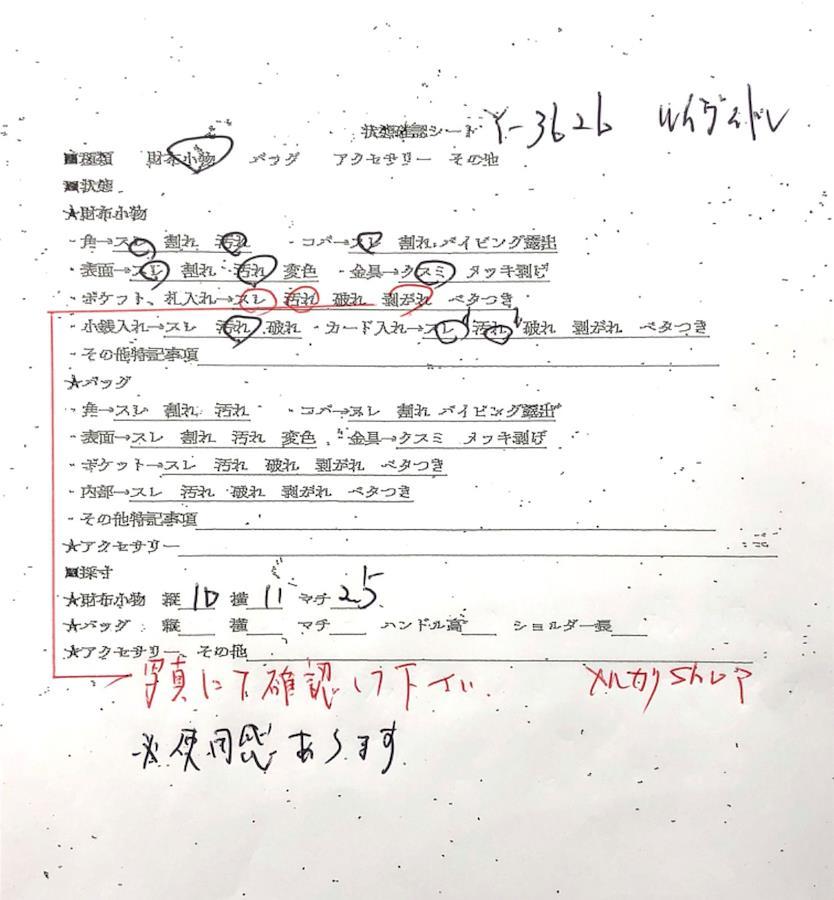 状態確認シート Y-3626 ルイヴィトン
■種類 財布小物 バッグ アクセサリー その他
■状態
★財布小物
・角→スレ 割れ 汚れ ・コバ→スレ 割れ パイピング露出
・表面→スレ 割れ 汚れ 変色 ・金具→クスミ メッキ剥げ
・ポケット、札入れ→スレ 汚れ 破れ 剥がれ ベタつき
・小銭入れ→スレ 汚れ 破れ ・カード入れ→スレ 汚れ 破れ 剥がれ ベタつき
・その他特記事項
★バッグ
・角→スレ 割れ 汚れ ・コバ→スレ 割れ パイピング露出
・表面→スレ 割れ 汚れ 変色 ・金具→クスミ メッキ剥げ
・ポケット→スレ 汚れ 破れ 剥がれ ベタつき
・内部→スレ 汚れ 破れ 剥がれ ベタつき
・その他特記事項
★アクセサリー
■採寸
★財布小物 縦 10 横 11 マチ 2.5
★バッグ 縦 横 マチ ハンドル高 ショルダー長
★アクセサリー、その他
写真にて確認して下さい. メルカリShop
※使用感あります